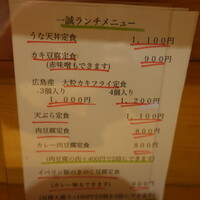 一誠ランチメニュー
うな天丼定食 1,100円
カキ豆腐定食 900円
(赤味噌もできます)
広島産 大粒カキフライ定食
・3個入り 4個入り
1,000円 1,200円
天ぷら定食 1,100円
肉豆腐定食 800円
カレー肉豆腐定食 800円
(肉豆腐の肉+400円で2倍にできます)